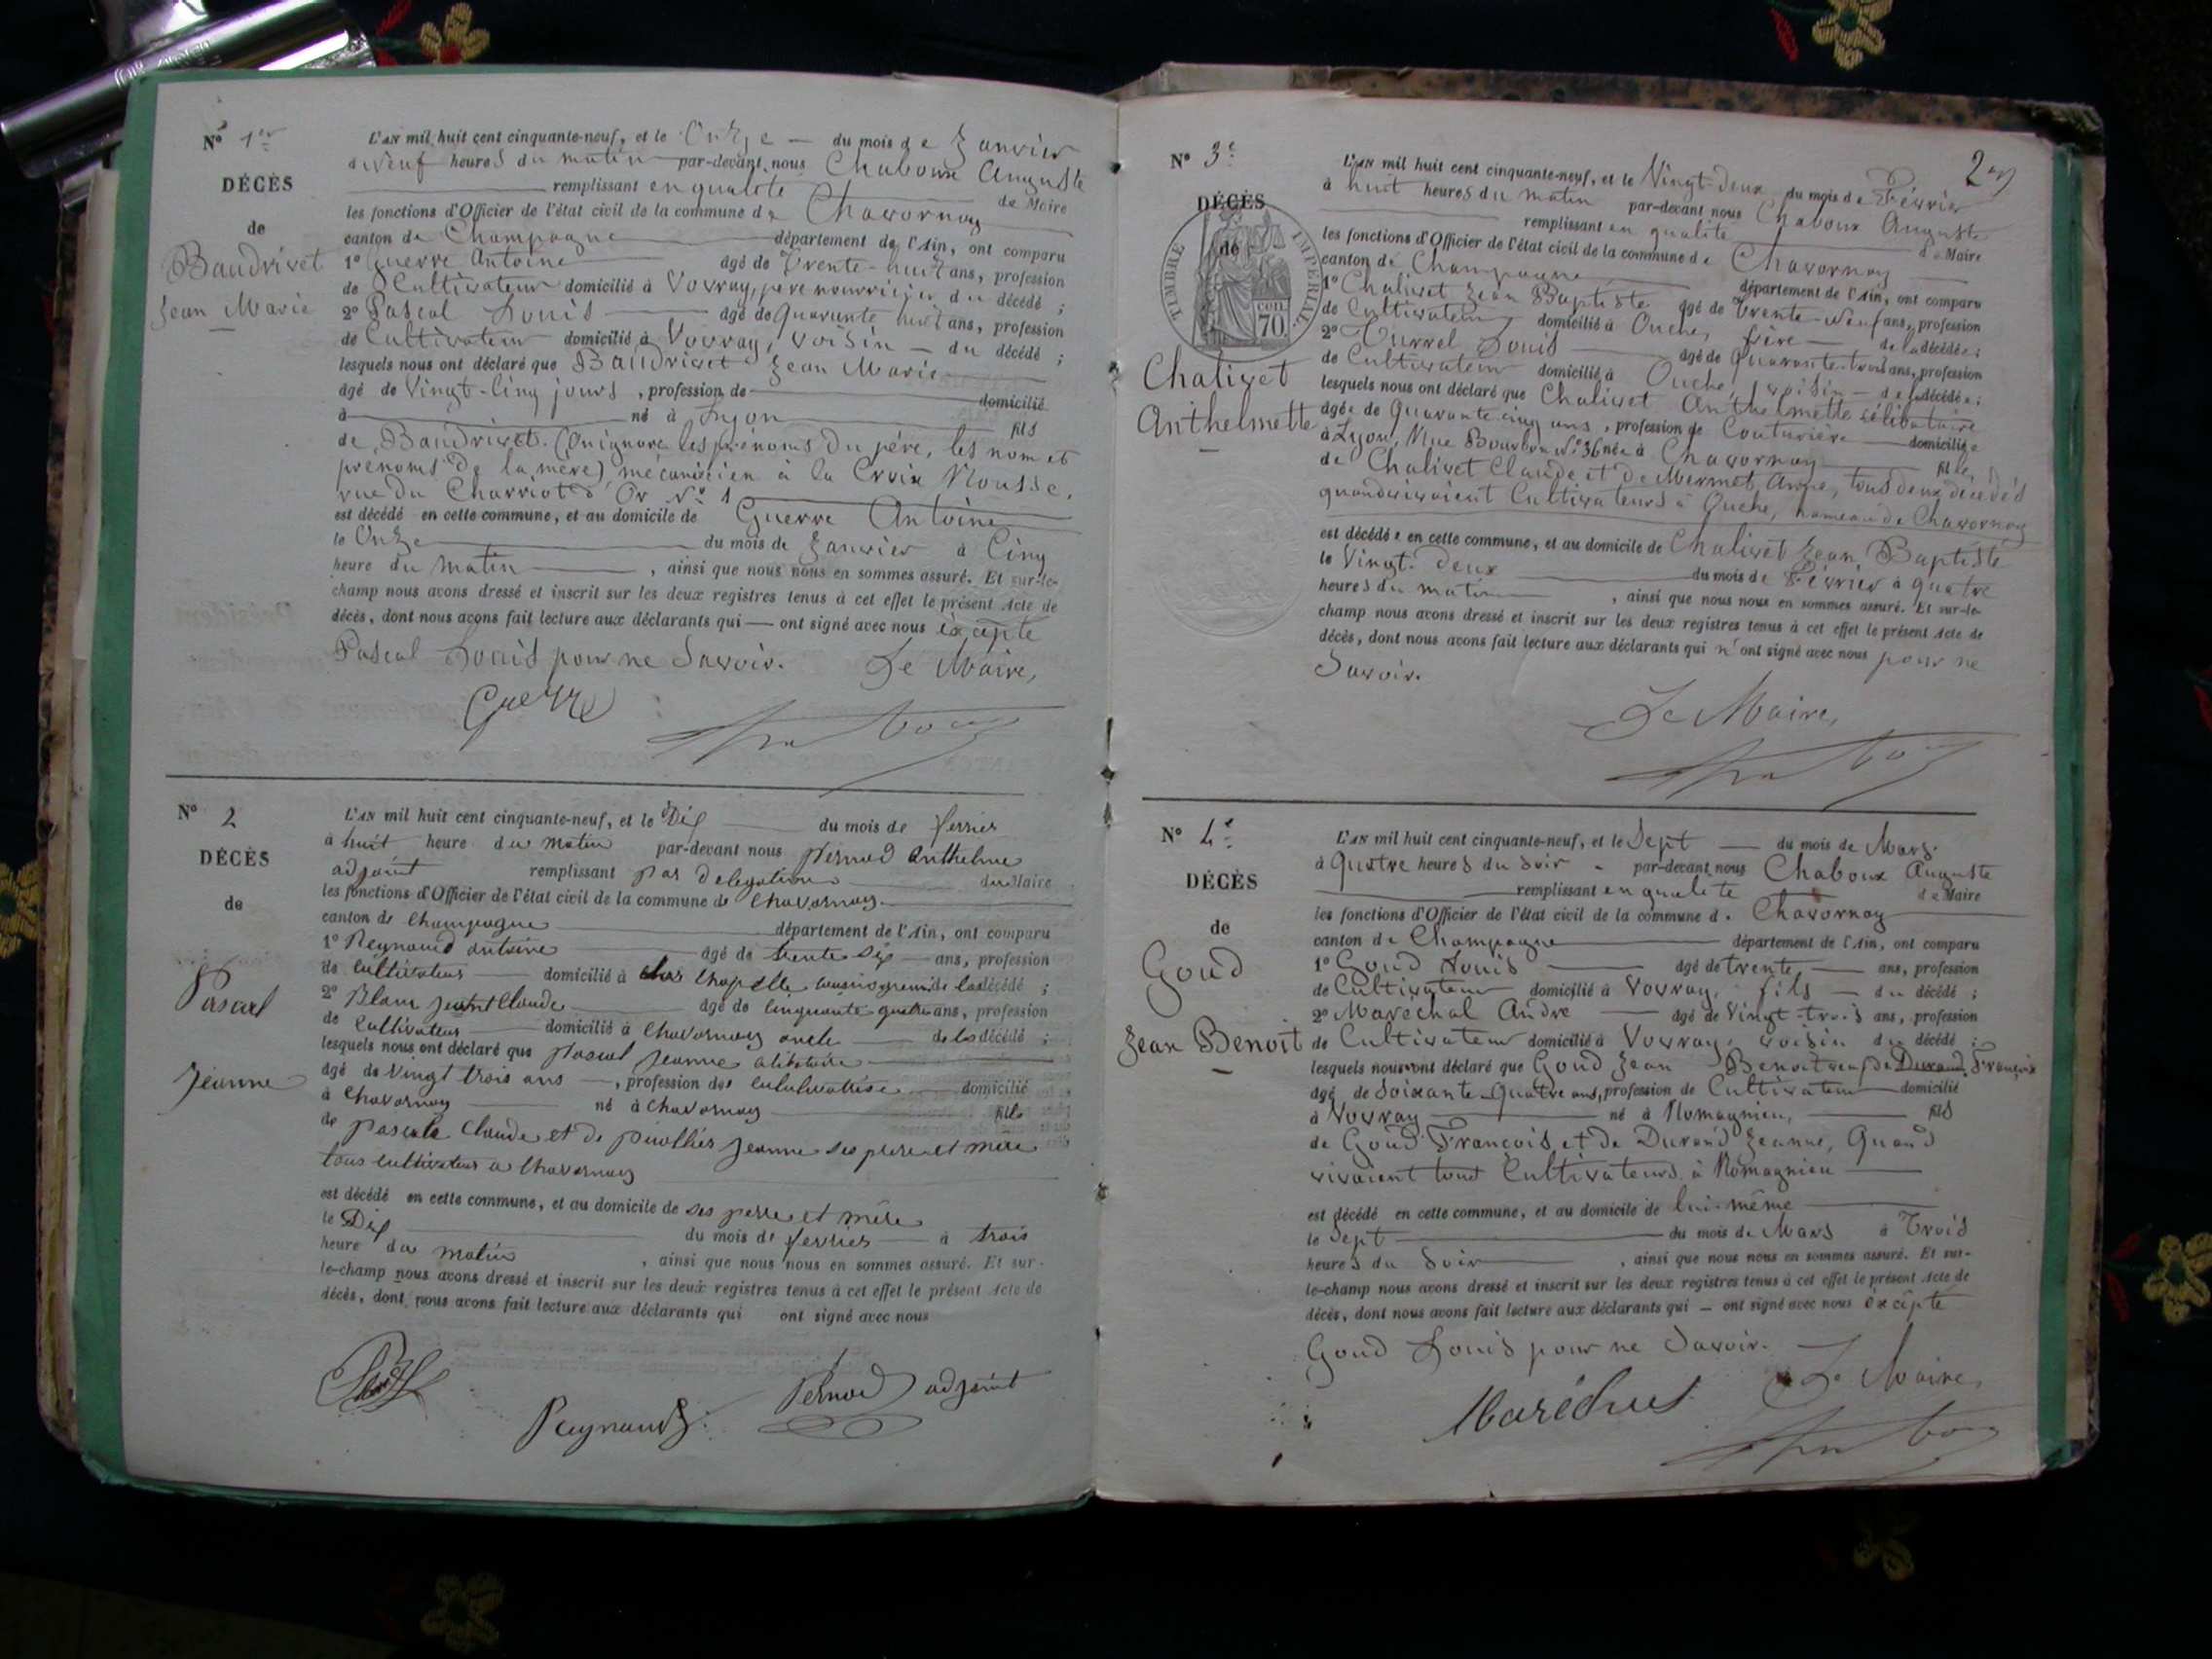 N° 1er
DÉCÈS
de
Baudrivet
Jean Marie
L'AN mil huit cent cinquante-neuf, et le Onze — du mois de Janvier
à Neuf heures du matin par-devant nous Chaboux Auguste
remplissant en qualité de Maire
les fonctions d'Officier de l'état civil de la commune de Chavornay
canton de Champagne département de l'Ain, ont comparu
1° Guerre Antoine âgé de Trente-huit ans, profession
de Cultivateur domicilié à Vovray, père nourricier du décédé ;
2° Pascal Louis âgé de Quarante huit ans, profession
de Cultivateur domicilié à Vovray, voisin — du décédé ;
lesquels nous ont déclaré que Baudrivet Jean Marie
âgé de Vingt-Cinq jours , profession de domicilié
à né à Lyon fils
de Baudrivet. (On ignore les prénoms du père, les nom et
prénoms de la mère) mécanicien à la Croix Rousse,
rue du Charriot d'Or N° 1
est décédé en cette commune, et au domicile de Guerre Antoine
le Onze du mois de Janvier à Cinq
heure du matin , ainsi que nous nous en sommes assuré. Et sur-le-
champ nous avons dressé et inscrit sur les deux registres tenus à cet effet le présent Acte de
décès, dont nous avons fait lecture aux déclarants qui — ont signé avec nous excepté
Pascal Louis pour ne savoir. Le Maire,
Guerre
N° 2
DÉCÈS
de
Pascal
Jeanne
L'AN mil huit cent cinquante-neuf, et le Dix du mois de fevrier
à huit heure du matin par-devant nous pernod anthelme
adjoint remplissant par delegation du Maire
les fonctions d'Officier de l'état civil de la commune de Chavornay
canton de Champagne département de l'Ain, ont comparu
1° Reynaud antoine âgé de trente Six ans, profession
de cultivateur domicilié à Chapelle de la décédé ;
2° Blanc jean Claude âgé de cinquante quatre ans, profession
de Cultivateur domicilié à Chavornay oncle de la décédé ;
lesquels nous ont déclaré que pascal jeanne
âgé de vingt trois ans , profession de domicilié
à Chavornay né à Chavornay fille
de pascal Claude et de jeanne ses pere et mère
tous cultivateur a Chavornay
est décédé en cette commune, et au domicile de ses pere et mère
le Dix du mois de fevrier à trois
heure du matin , ainsi que nous nous en sommes assuré. Et sur-
le-champ nous avons dressé et inscrit sur les deux registres tenus à cet effet le présent Acte de
décès, dont nous avons fait lecture aux déclarants qui ont signé avec nous
Reynaud Pernod adjoint
2
N° 3e
DÉCÈS
de
TIMBRE IMPÉRIAL
cen. 70
Chalivet
Anthelmette
L'AN mil huit cent cinquante-neuf, et le Vingt-deux du mois de Février
à huit heures du matin par-devant nous Chaboux Auguste
remplissant en qualité de Maire
les fonctions d'Officier de l'état civil de la commune de Chavornay
canton de Champagne département de l'Ain, ont comparu
1° Chalivet Jean Baptiste âgé de Trente-Neuf ans, profession
de Cultivateur domicilié à Ouche, frère — de la décédée ;
2° Turrel Louis âgé de Quarante-trois ans, profession
de Cultivateur domicilié à Ouche, voisin — de la décédée ;
lesquels nous ont déclaré que Chalivet Anthelmette célibataire
âgée de Quarante-cinq ans , profession de Couturière domiciliée
à Lyon, Rue Bourbon N° 36 née à Chavornay fille
de Chalivet Claude et de Mermet Anne, tous deux décédés
quand vivaient Cultivateurs à Ouche, hameau de Chavornay
est décédée en cette commune, et au domicile de Chalivet Jean Baptiste
le Vingt-deux du mois de Février à quatre
heures du matin , ainsi que nous nous en sommes assuré. Et sur-le-
champ nous avons dressé et inscrit sur les deux registres tenus à cet effet le présent Acte de
décès, dont nous avons fait lecture aux déclarants qui n'ont signé avec nous pour ne
Savoir.
Le Maire,
N° 4e
DÉCÈS
de
Goud
Jean Benoit
L'AN mil huit cent cinquante-neuf, et le Sept — du mois de Mars
à Quatre heures du Soir par-devant nous Chaboux Auguste
remplissant en qualité de Maire
les fonctions d'Officier de l'état civil de la commune de Chavornay
canton de Champagne département de l'Ain, ont comparu
1° Goud Louis âgé de trente ans, profession
de Cultivateur domicilié à Vovray, fils — du décédé ;
2° Maréchal André âgé de Vingt-trois ans, profession
de Cultivateur domicilié à Vovray, voisin du décédé ;
lesquels nous ont déclaré que Goud Jean Benoit veuf de Durand Françoise
âgé de Soixante-Quatre ans, profession de Cultivateur domicilié
à Vovray né à Romagnieu, fils
de Goud François, et de Durand Jeanne, Quand
vivaient tous Cultivateurs à Romagnieu
est décédé en cette commune, et au domicile de lui-même
le Sept du mois de Mars à Trois
heures du Soir , ainsi que nous nous en sommes assuré. Et sur-
le-champ nous avons dressé et inscrit sur les deux registres tenus à cet effet le présent Acte de
décès, dont nous avons fait lecture aux déclarants qui — ont signé avec nous excepté
Goud Louis pour ne Savoir.
Le Maire,
Maréchal